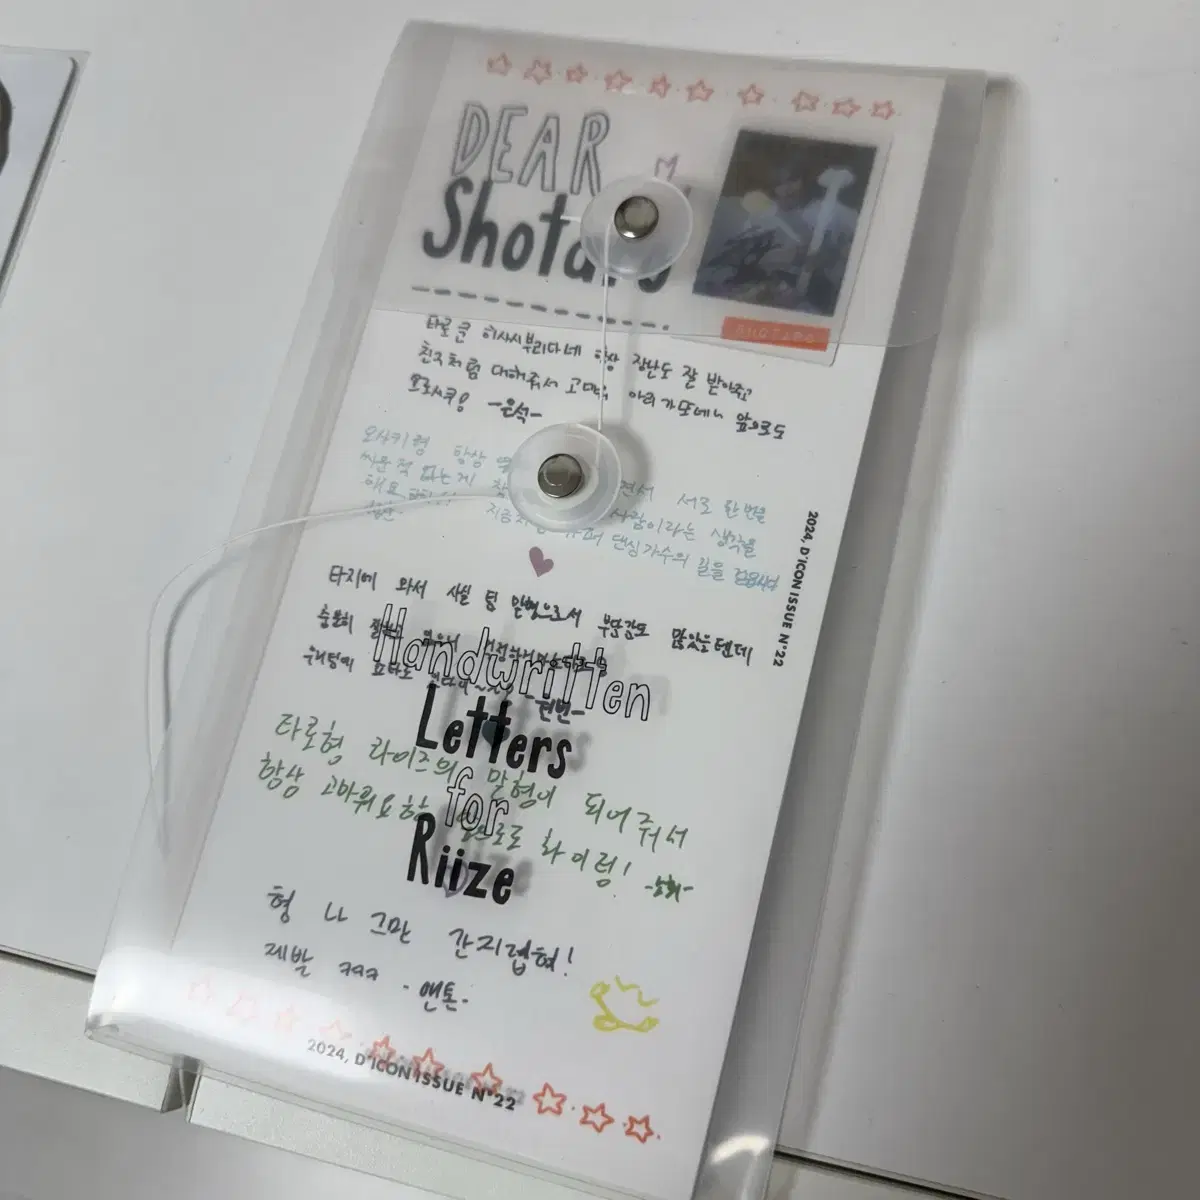 DEAR
Shotaro
SHOTARO
타로 큰 히사시부리다네 항상 장난도 잘 받아주고
친구처럼 대해줘서 고마워 아리가또에나 앞으로도
요로시쿠! -은석-
오사키형 항상 면서 서로 한번을
싸운적 없는게 사람이라는 생각을
해요 댄싱가수의 길을 걸읍시다
-성찬-
타지에 와서 사실 팀 맏형으로서 부담감도 많았을텐데
충분히 잘하고
-원빈-
타로형 라이즈의 맏형이 되어줘서
항상 고마워요 앞으로도 화이팅! -소희-
형 나 그만 간지럽혀!
제발 ㅋㅋㅋ -앤톤-
Handwritten
Letters
for
Riize
2024, D'ICON ISSUE N°22
2024, D'ICON ISSUE N°22